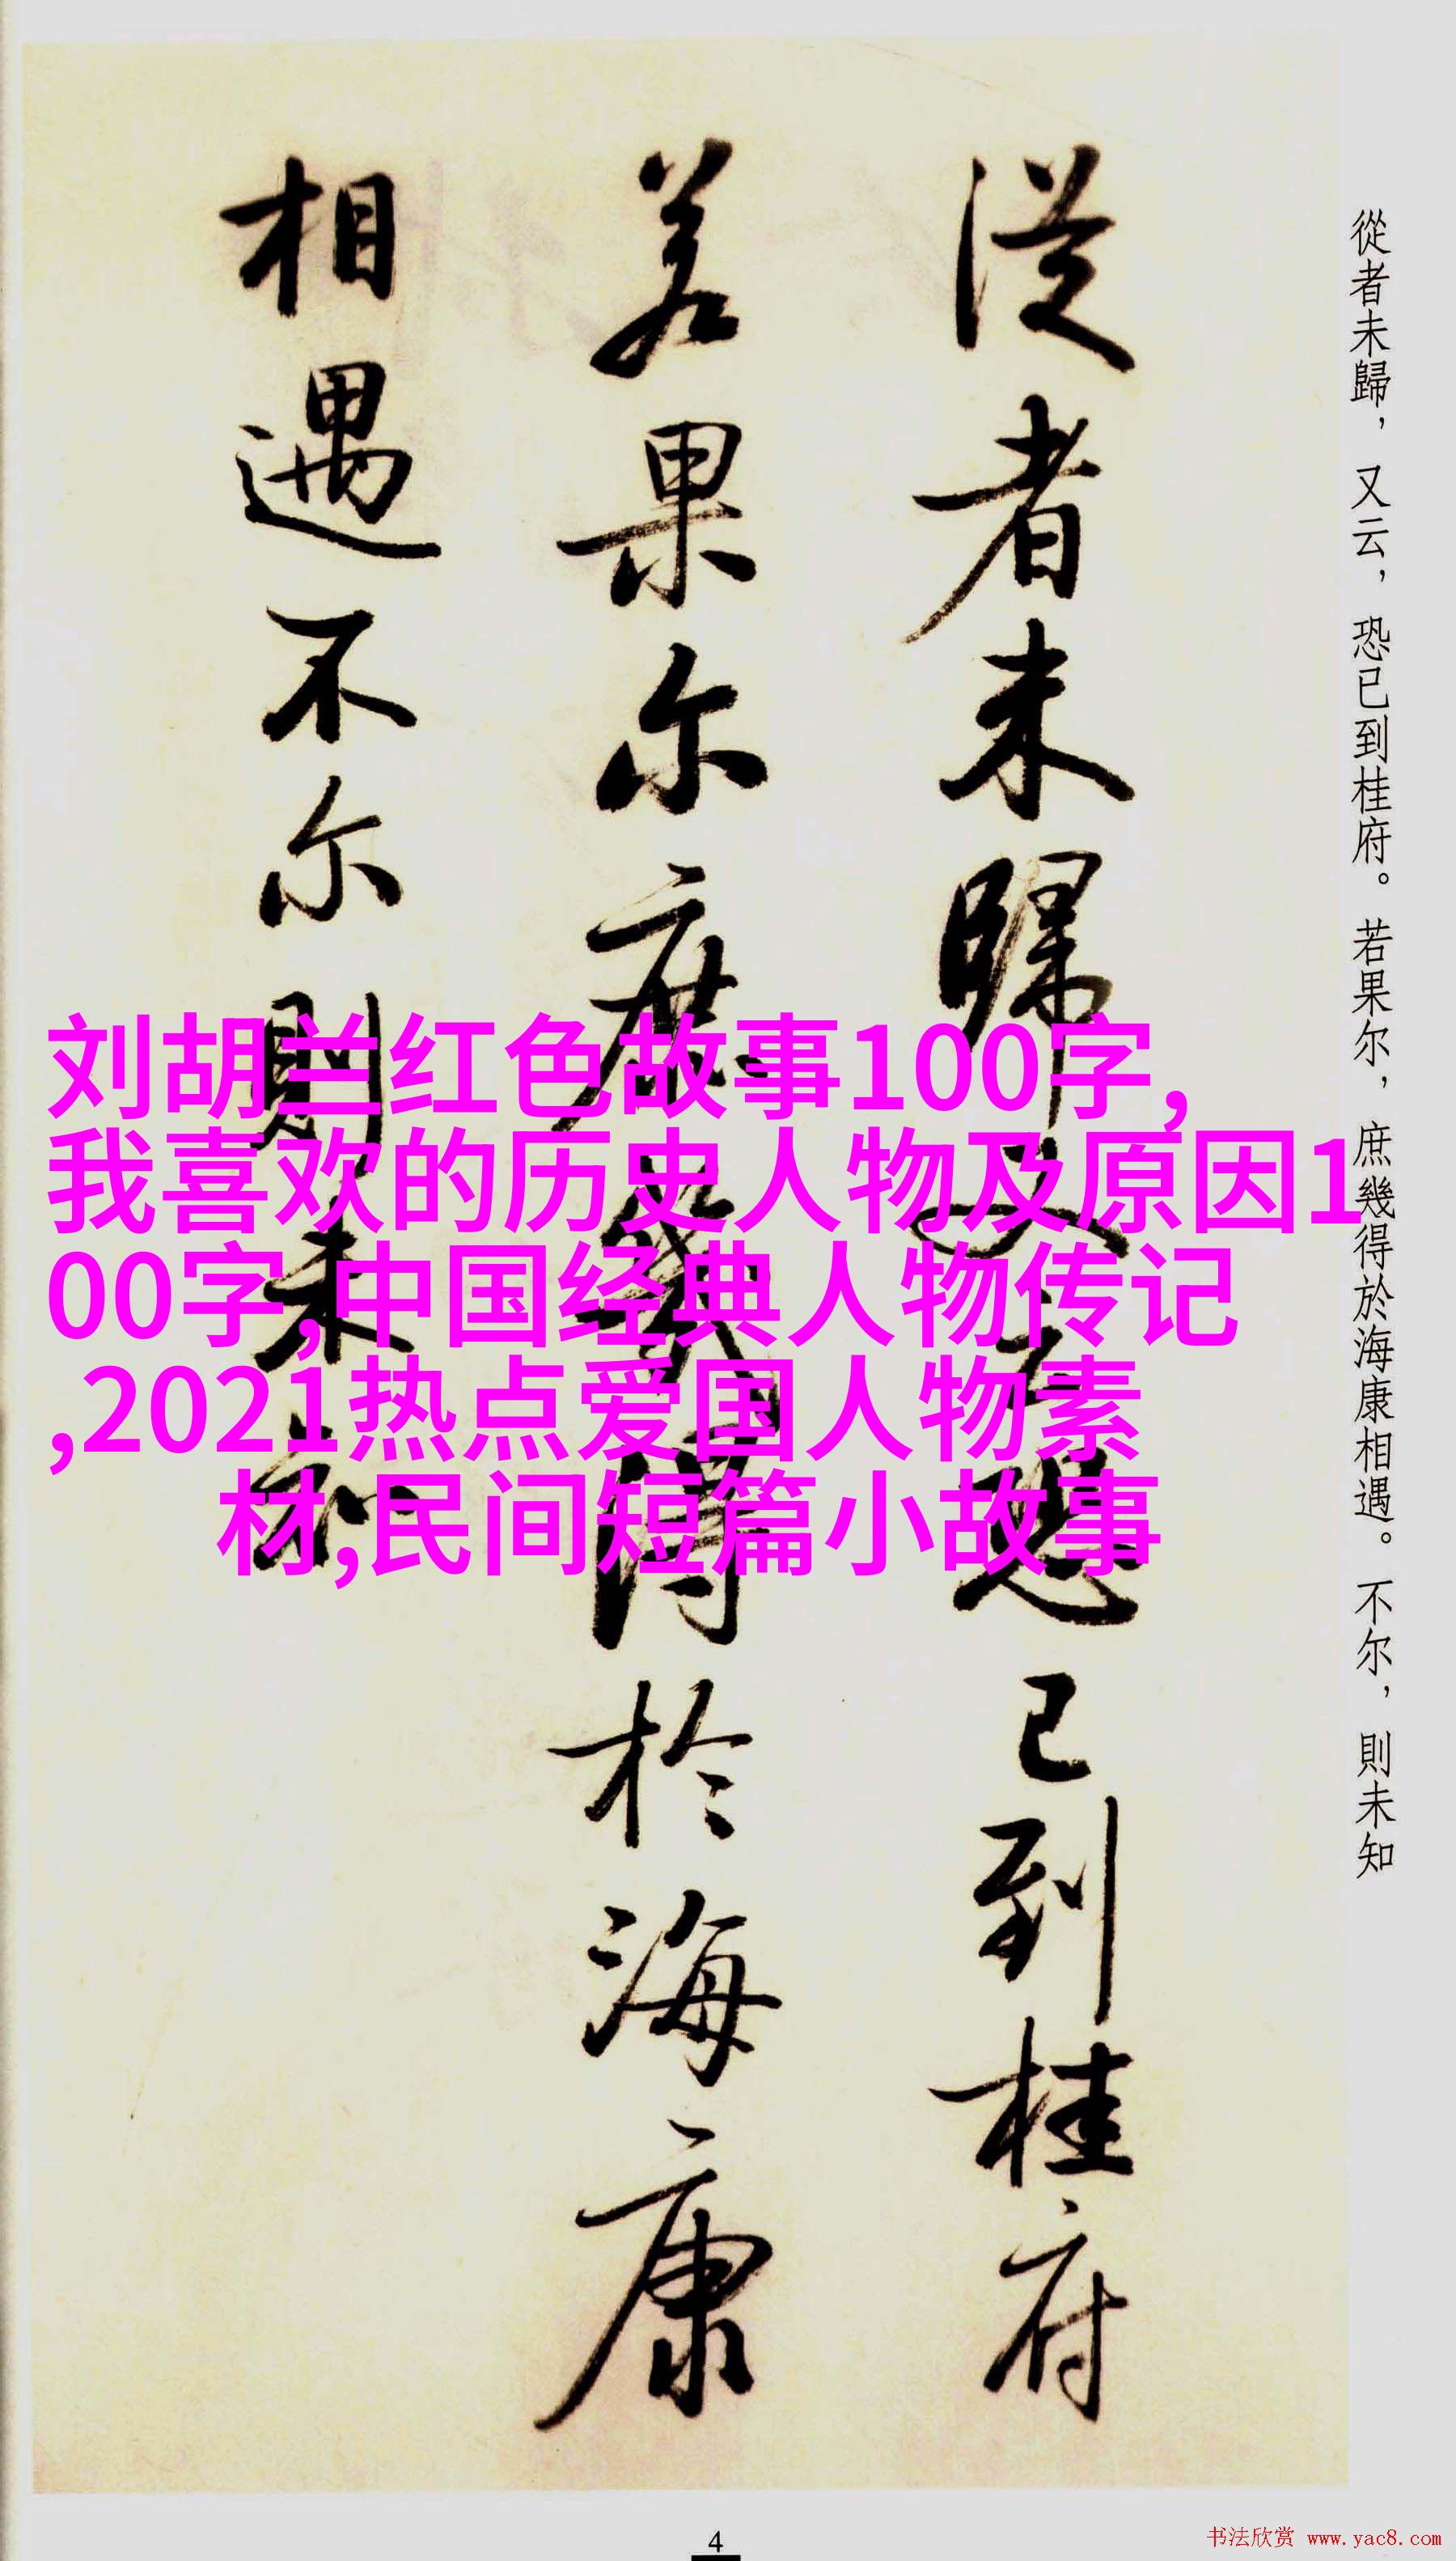 從者未歸，又云，恐已到桂府。若果尔，庶幾得於海康相遇。不尔，則未知
从者未歸又云恐已到桂府
若果尔庶幾得於海康
相遇不尔則未知
刘胡兰红色故事100字,
我喜欢的历史人物及原因1
00字,中国经典人物传记
,2021热点爱国人物素
材,民间短篇小故事
4
书法欣赏 www.yac8.com